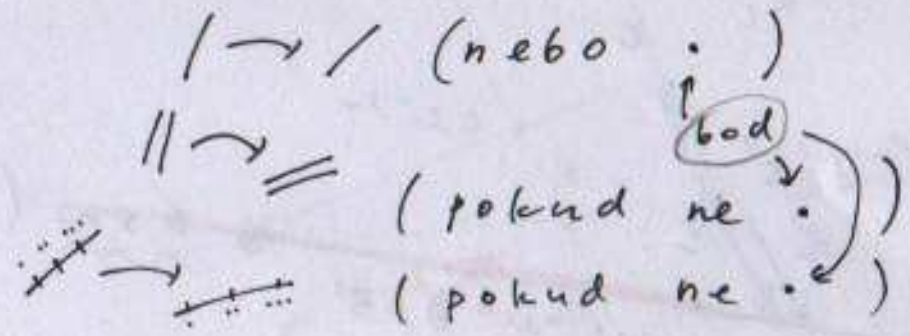 / → / (nebo • )
bod
// → // (pokud ne • )
→ (pokud ne • )